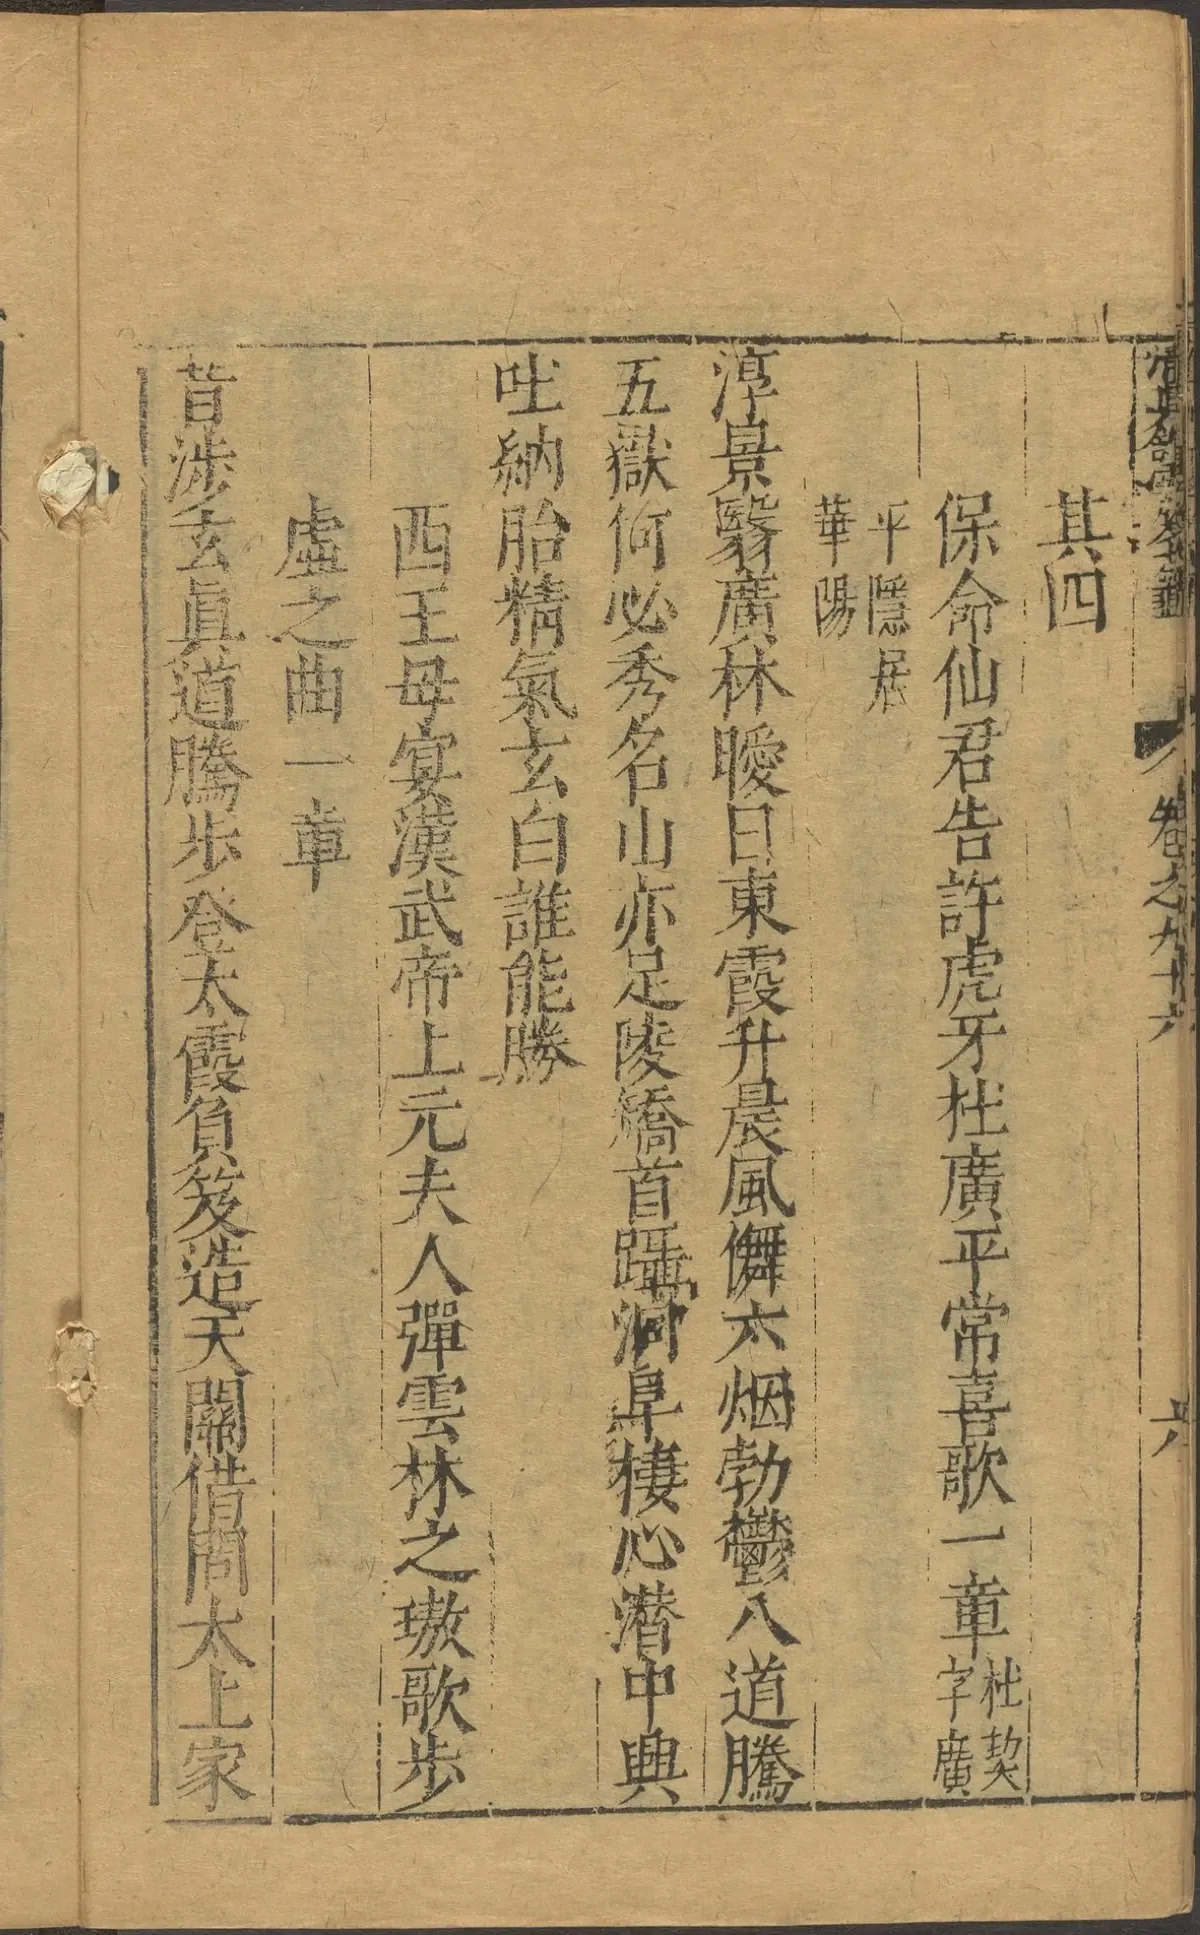 卷之九十六 六
其四
保命仙君告許虎牙杜廣平常喜歌一章杜契字廣
平隱居
華陽
淳景翳廣林曖日東霞升晨風儛六烟勃鬱八道騰
五嶽何必秀名山亦足陵矯首躡洞阜棲心潛中興
吐納胎精氣玄白誰能勝
西王母宴漢武帝上元夫人彈雲林之璈歌步
虛之曲一章
昔涉玄眞道騰步登太霞負笈造天關借問太上家